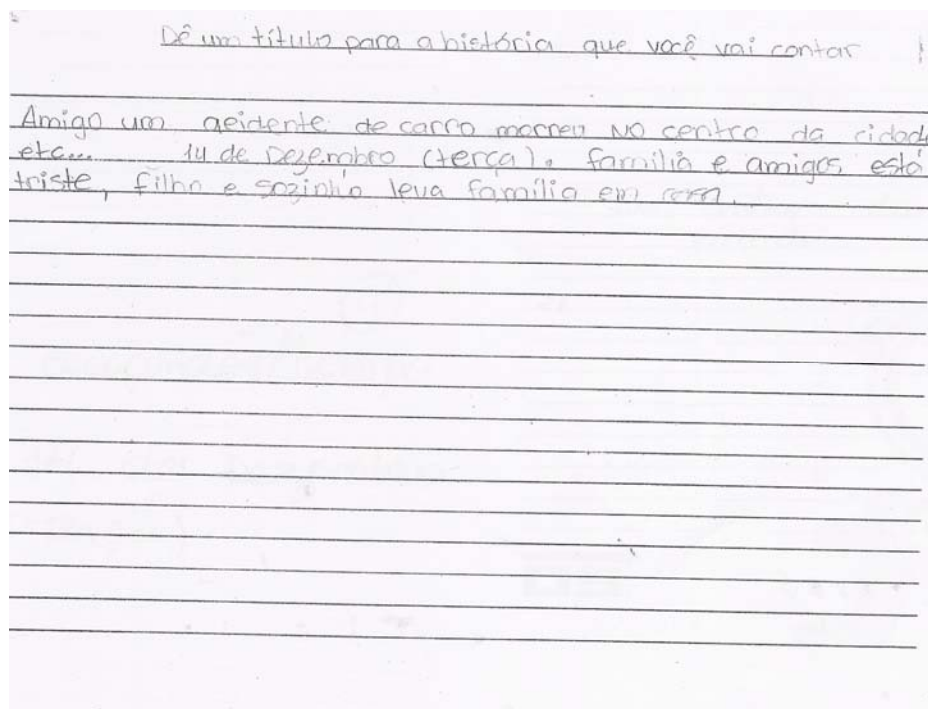 Dê um título para a história que você vai contar
Amigo um aeidente de carro morreu no centro da cidade
etc... 14 de Dezembro (terça). família e amigos está
triste, filho e sozinho leva família em casa.